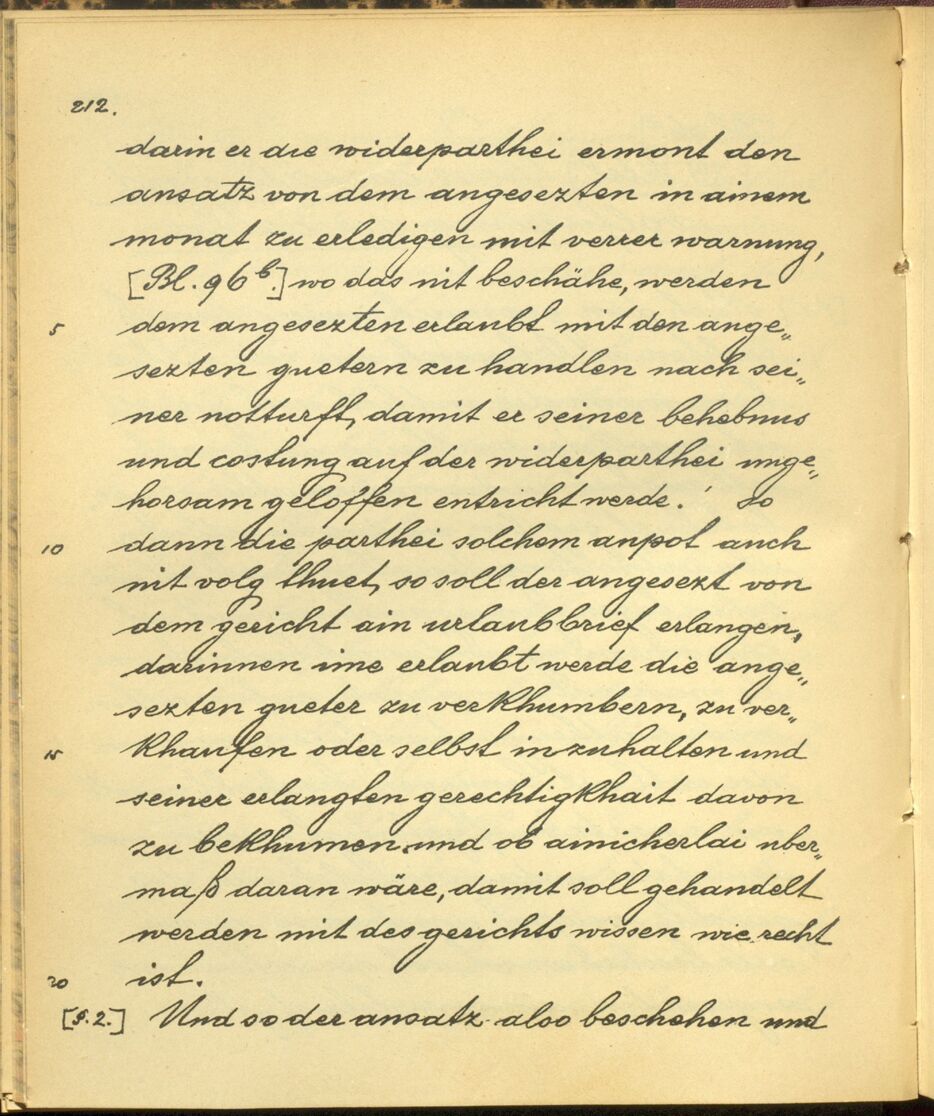 212.
darin er die widerparthei ermont den
ansatz von dem angesezten in ainem
monat zu erledigen mit verrer warnung,
[Bl. 96 b.] wo das nit beschähe, werden
5 dem angesezten erlaubt mit den ange„
sezten guetern zu handlen nach sei„
ner notturft, damit er seiner behebnus
und costung auf der widerparthei unge„
horsam geloffen entricht werde. So
10 dann die parthei solchem anpot auch
nit volg thuet, so soll der angesezt von
dem gericht ain urlaubbrief erlangen,
darinnen ime erlaubt werde die ange„
sezten gueter zu verkhumbern, zu ver„
15 khaufen oder selbst inzuhalten und
seiner erlangten gerechtigkhait davon
zu bekhumen und ob ainicherlai uber„
maß daran wäre, damit soll gehandelt
werden mit des gerichts wissen wie recht
20 ist.
[§. 2.] Und so der ansatz also beschehen und